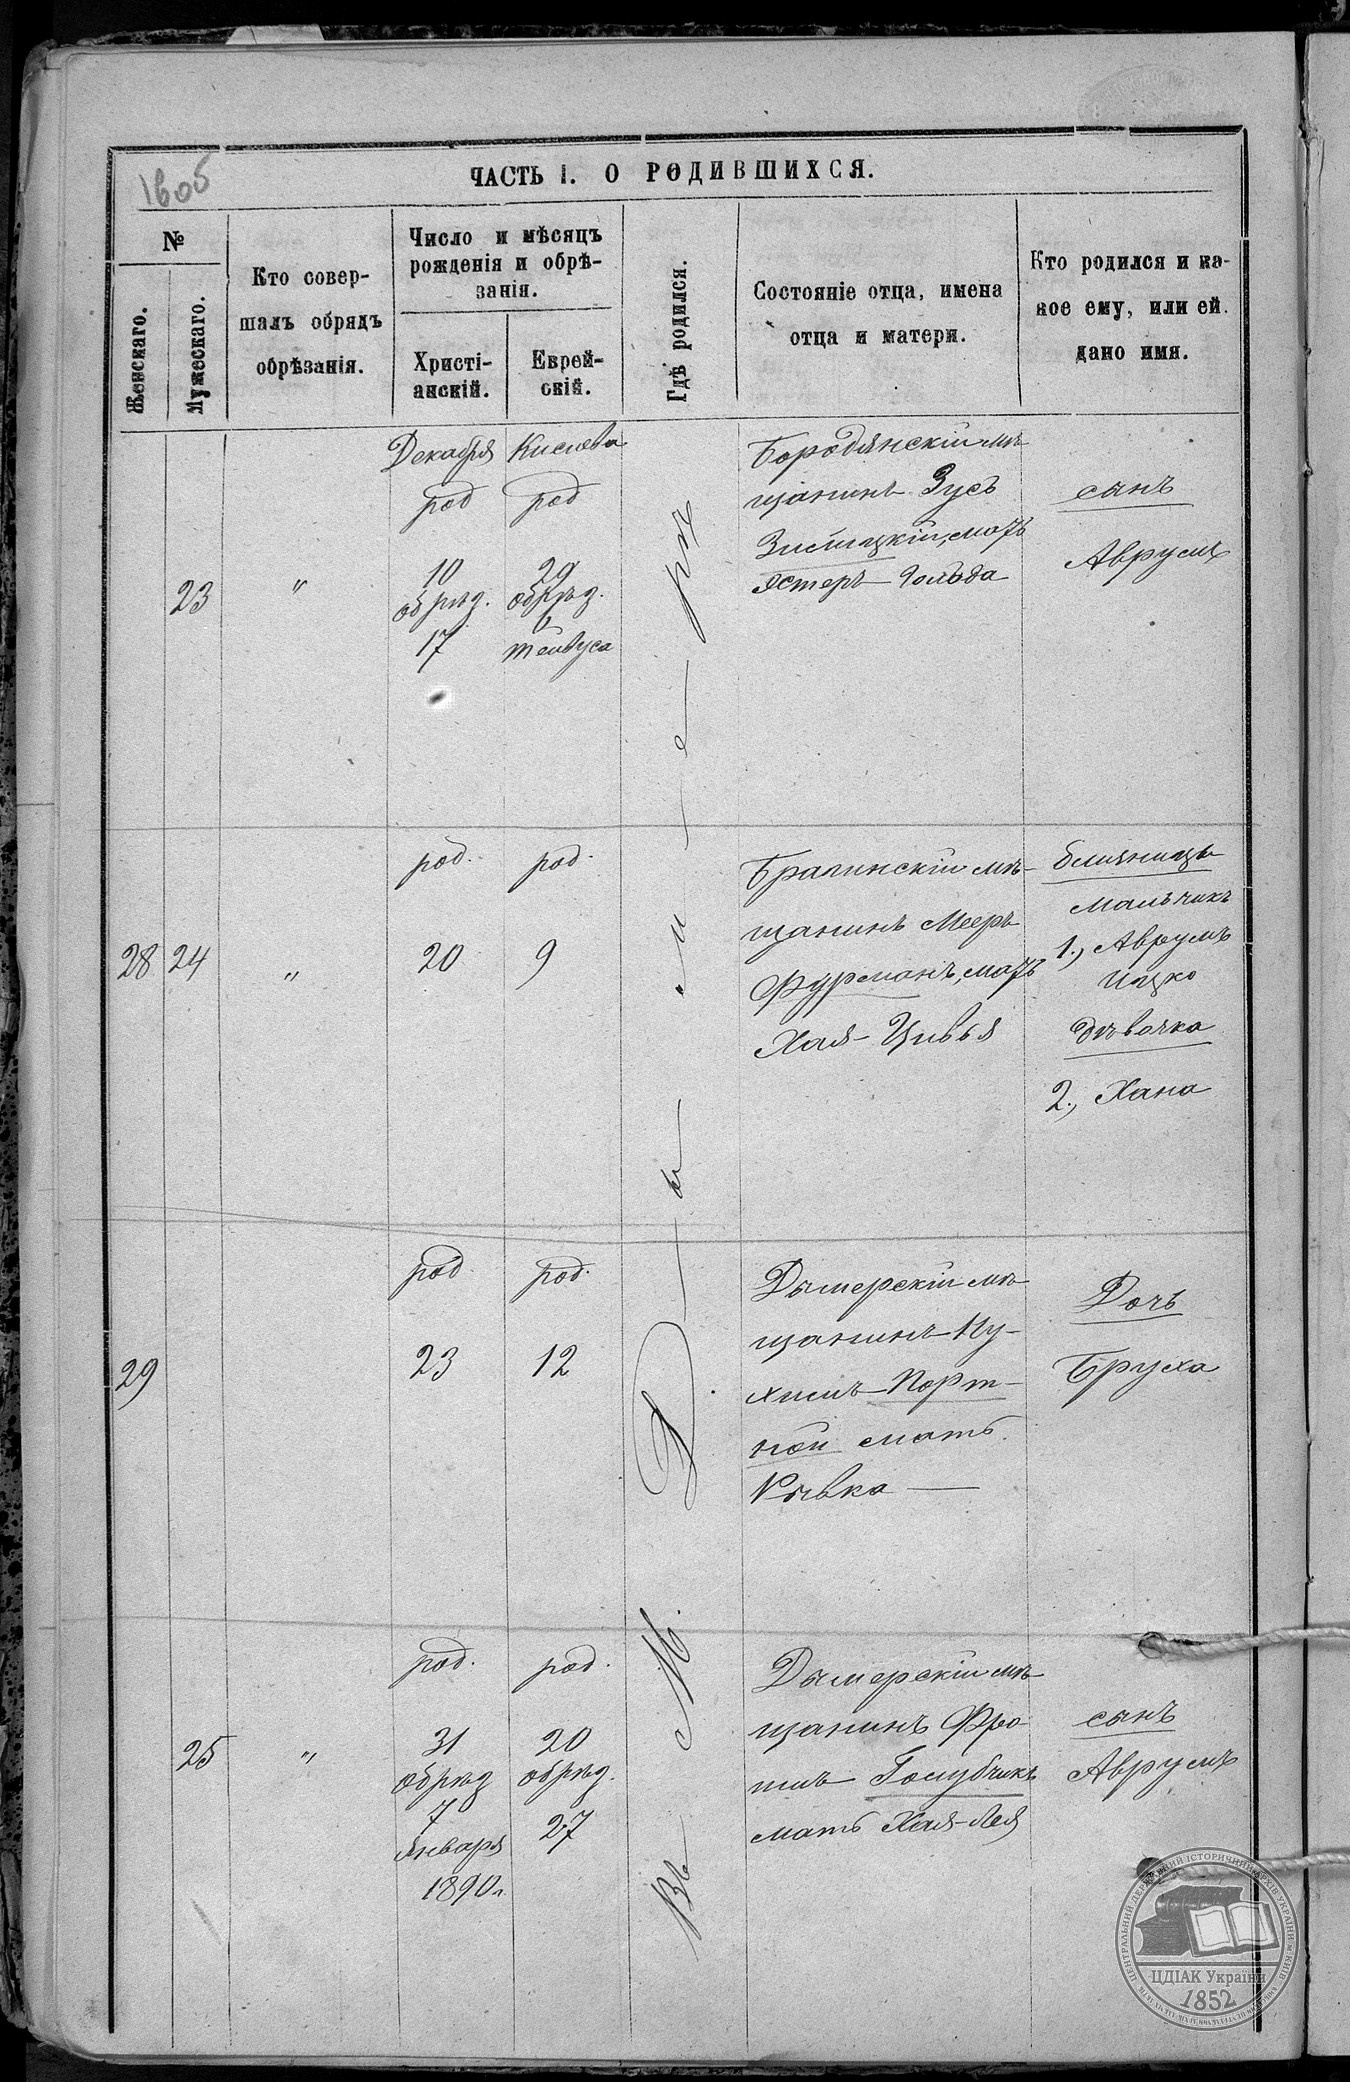 1605
ЧАСТЬ I. О РОДИВШИХСЯ.
№
Женскаго.
Мужескаго.
Кто совер-
шалъ обрядъ
обрѣзанія.
Число и мѣсяцъ
рожденія и обрѣ-
занія.
Христі-
анскій.
Еврей-
скій.
Гдѣ родился.
Состояніе отца, имена
отца и матери.
Кто родился и ка-
кое ему, или ей
дано имя.
Въ М. Дымерѣ
23
"
Декабря
род
10
обрѣз.
17
Кислева
род
29
обрѣз.
6
Тейвуса
Бородянскій мѣ-
щанинъ Зусь
мать
Эстеръ Гольда
сынъ
Аврумъ
28 24
"
род.
20
род.
9
мѣ-
щанинъ Мееръ
Фурманъ, мать
Хая-Цивья
близнецы
мальчикъ
1., Аврумъ
Ицко
дѣвочка
2., Хана
29
род
23
род.
12
Дымерскій мѣ-
щанинъ Ну-
химъ Порт-
ной мать
Рывка —
Дочь
Бруха
25
"
род.
31
обрѣз
7
Января
1890 г.
род.
20
обрѣз.
27
Дымерскій мѣ-
щанинъ Фро-
имъ Голубчикъ
мать Хая-Лея
сынъ
Аврумъ
ЦЕНТРАЛЬНИЙ ДЕРЖАВНИЙ ІСТОРИЧНИЙ АРХІВ УКРАЇНИ м. КИЇВ
ЦДІАК України
1852